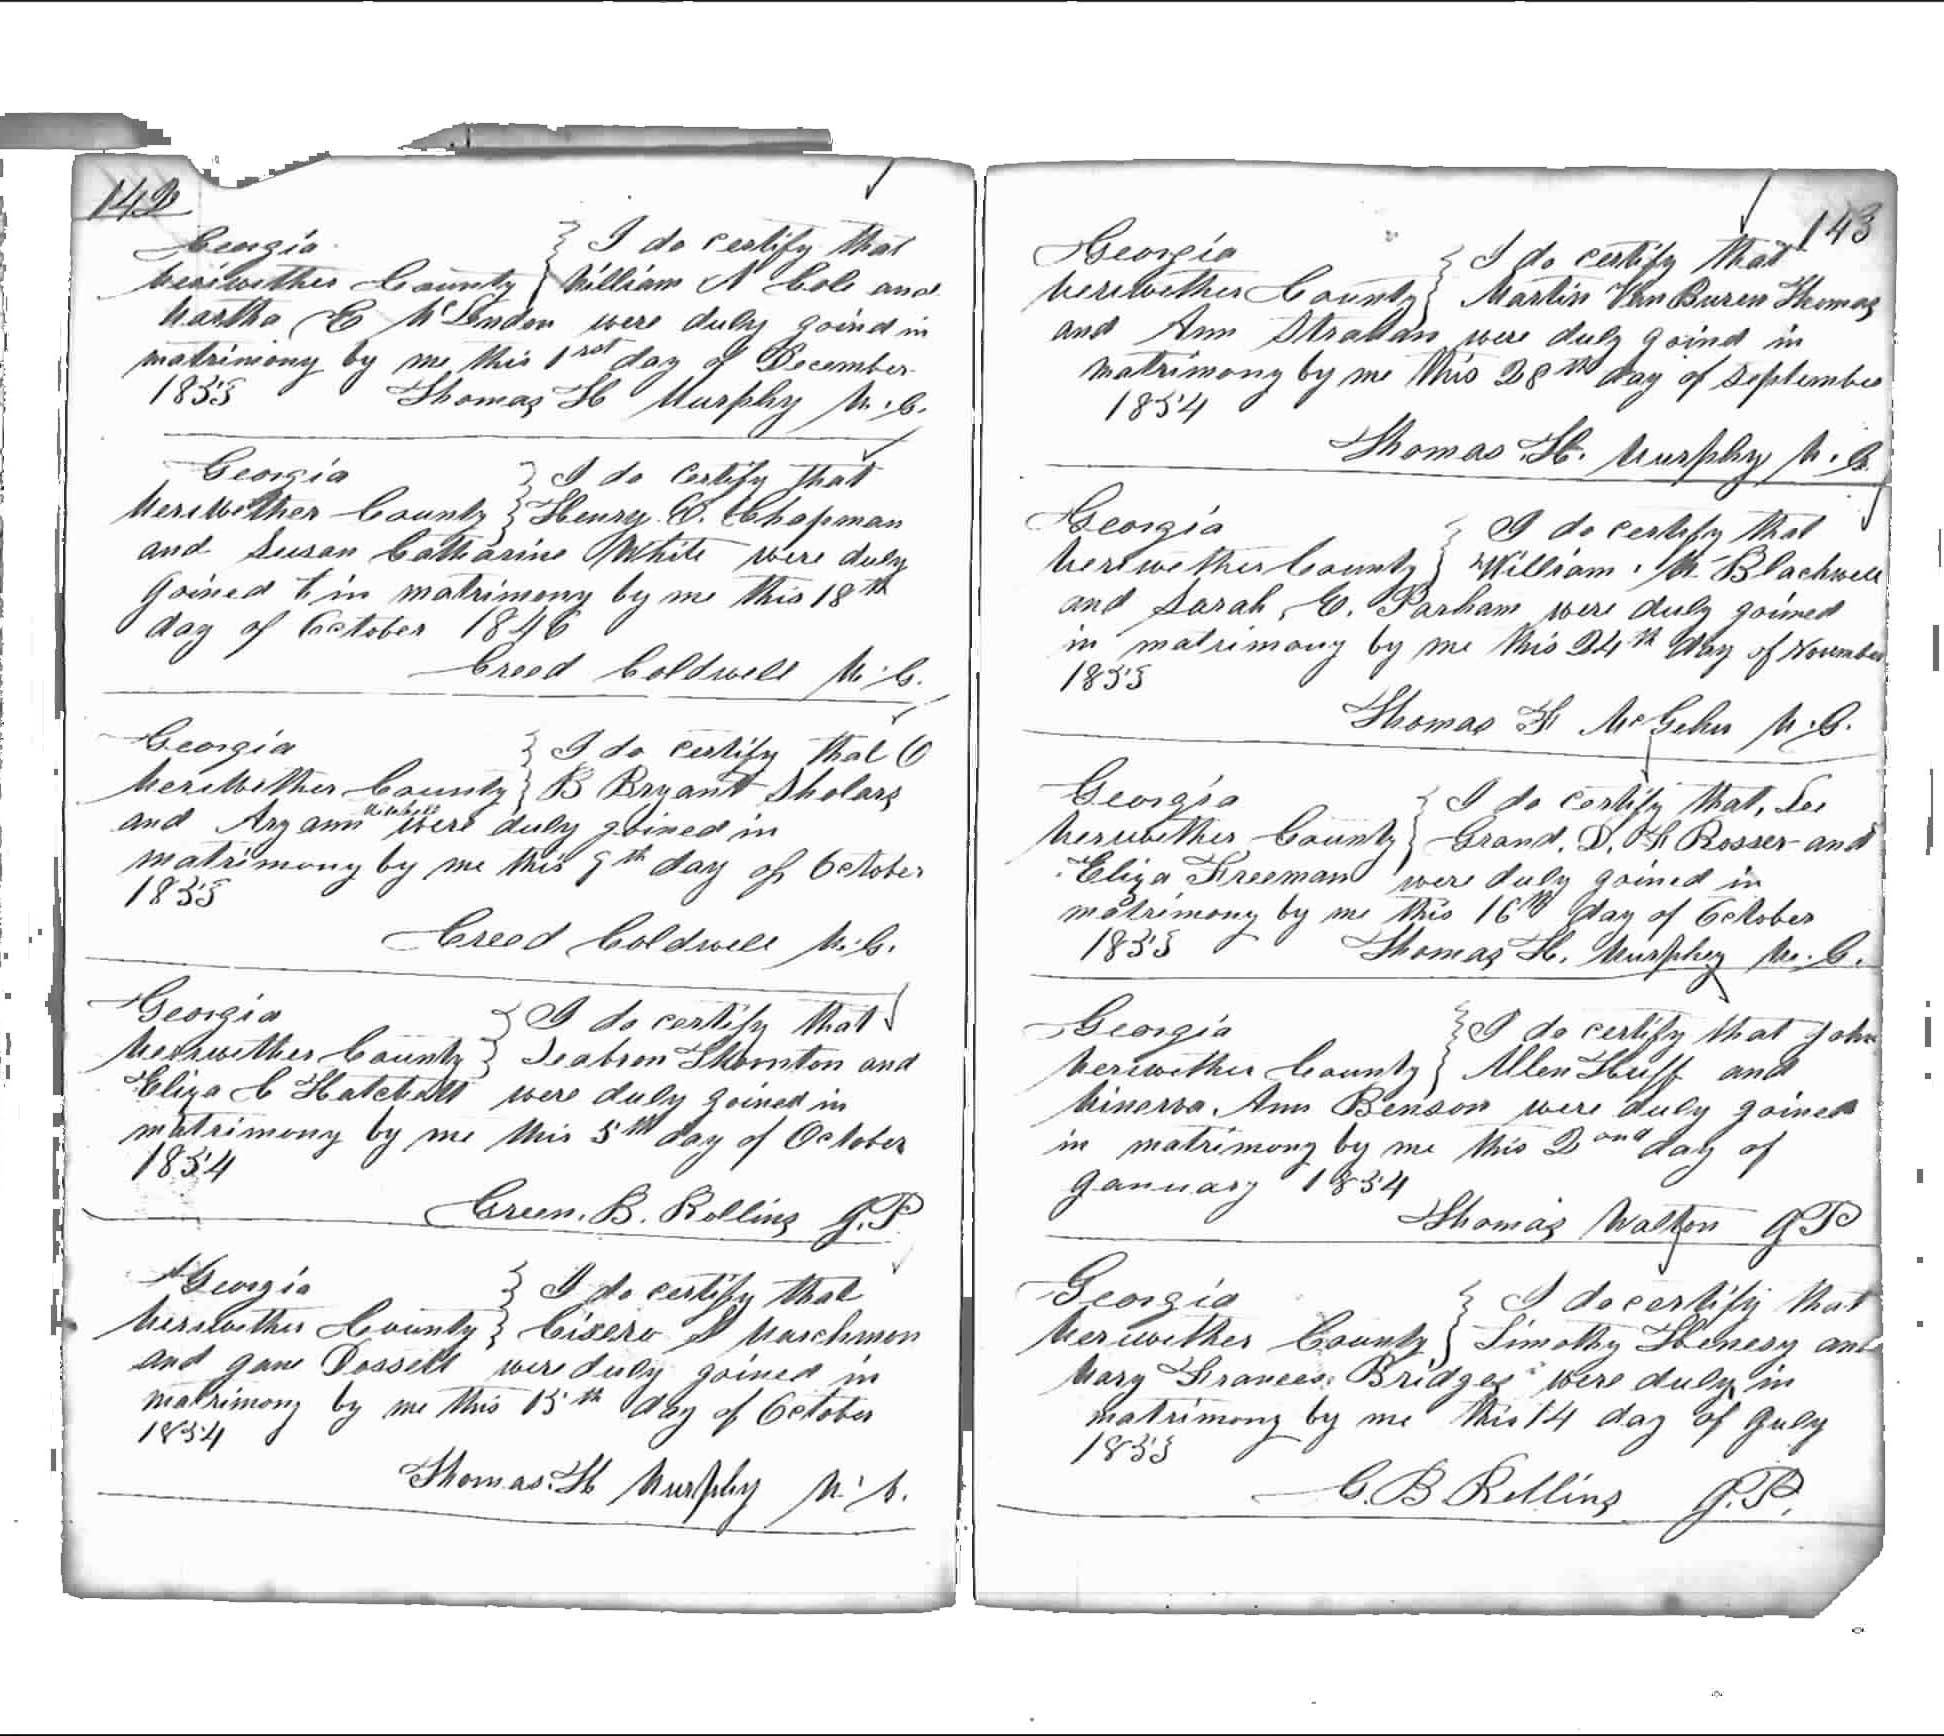 142
Georgia } I do certify that
Meriwether County } William N Cole and
Martha E McLendon were duly goind in
matrimony by me this 1rst day of December
1853 Thomas H Murphy M.G.
Georgia } I do certify that
Meriwether County } Henry C. Chapman
and Susan Catharine White were duly
goined t in matrimony by me this 18th
day of October 1846
Creed Coldwell M.G.
Georgia } I do certify that O
Meriwether County } B Bryant Sholars
and Aryann were duly goined in
matrimony by me this 9th day of October
1853
Creed Coldwell M.G.
Georgia } I do certify that
Meriwether County } Seabron Thornton and
Eliza C Hatchett were duly goined in
matrimony by me this 5th day of October
1854
Green. B. Rollins J.P
Georgia } I do certify that
Meriwether County } Cisero A Marchmon
and gane Dossett were duly goined in
matrimony by me this 15th day of October
1854
Thomas. H Murphy M.G.
143
Georgia } I do certify that
Meriwether County } Martin Van Buren Thomas
and Ann were duly goind in
matrimony by me this 28th day of September
1854
Thomas. H. Murphy M.G.
Georgia } I do certify that
Meriwether County } William. M Blackwell
and Sarah, E. Parham were duly goined
in matrimony by me this 24th day of November
1853
Thomas F McGehee M.G.
Georgia } I do certify that, Lee
Meriwether County } Grand. D. F Rosser and
Eliza Freeman were duly goined in
matrimony by me this 16th day of October
1853 Thomas H. Murphey M.G.
Georgia } I do certify that john
Meriwether County } Allen Huff and
Minerva. Ann Benson were duly goined
in matrimony by me this 2ond day of
ganuary 1854
Thomas Walton JP
Georgia } I do certify that
Meriwether County } Timothy Henery and
Mary Frances Bridges were duly in
matrimony by me this 14 day of guly
1853
G. B Rollins J.P.